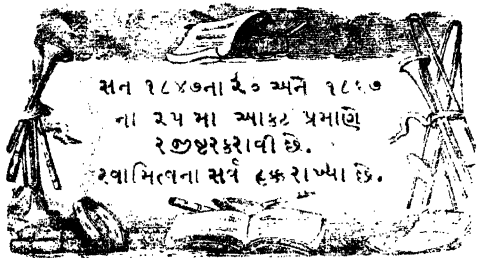 સન ૧૮૪૭ના ૨૦ અને ૧૮૬૭
ના ૨૫ મા આકટ પ્રમાણે
રજીષ્ટર કરાવી છે.
સ્વામિત્વના સર્વ હક્ક રાખ્યા છે.